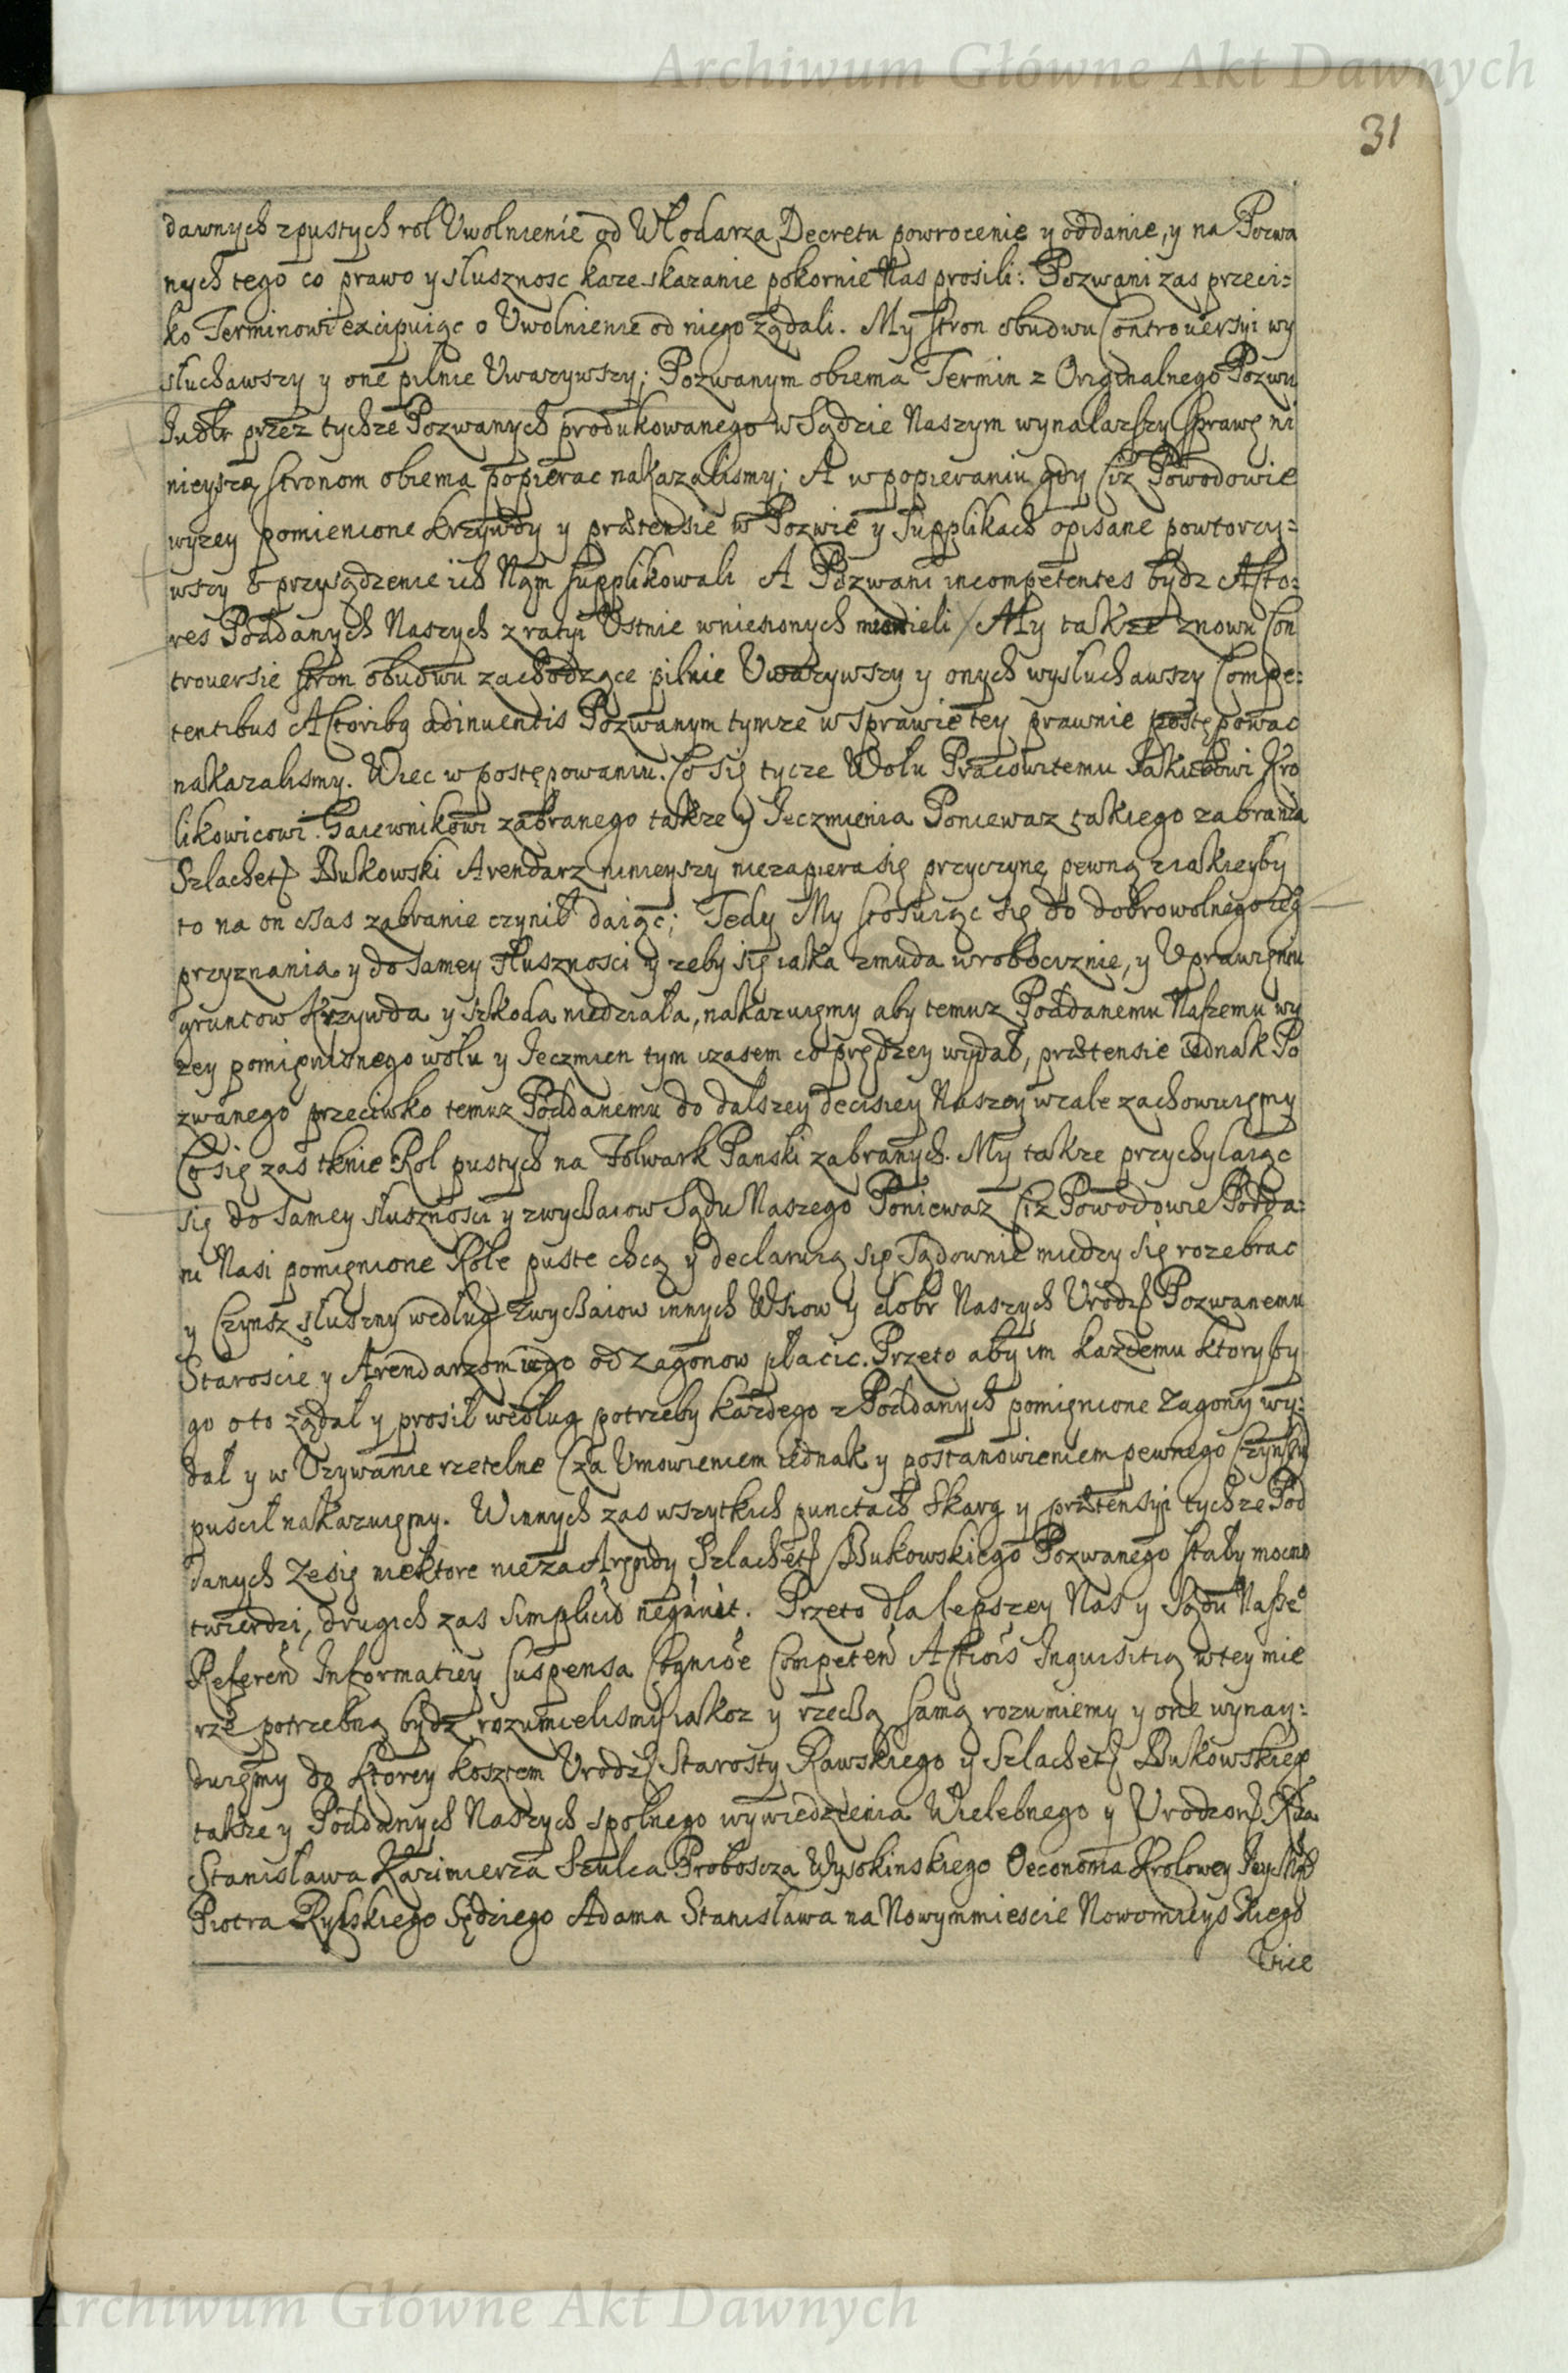 Archiwum Główne Akt Dawnych
31
dawnych z pustych rol Uwolnienie od Włodarza Decretu powrocenie y oddanie, y na Pozwa
nych tego co prawo y slusznosc kaze skazanie pokornie Nas prosili: Pozwani zas przeci=
ko Terminowi excipuiąc o Uwolnienie od niego ządali. My stron obudwu Controuersyi wy
słuchawszy y one pilnie Uwazywszy; Pozwanym obiema Termin z Originalnego Pozwu
przez tychze Pozwanych produkowanego w Sądzie Naszym wynalazszy Sprawę ni
nieyszą stronom obiema popierac nakazalismy; A w popieraniu gdy Ciz Powodowie
wyzey pomienione Krzywdy y prætensie w Pozwie y Supplikach opisane powtorzy=
wszy o przysądzenie ich Nam supplikowali A Pozwani incompetentes bydz Acto=
res Poddanych Naszych z ratyi Ustnie wniesionych mienieli My takze znowu Con
trouersie stron obudwu zachodzące pilnie Uwazywszy y onych wysłuchawszy Compe=
tentibus Actoribq adinuentis Pozwanym tymze w sprawie tey prawnie postępowac
nakazalismy. Wiec w postępowaniu. Co się tycze Wołu Pracowitemu Jakubowi Kro
likowicowi Gaiewnikowi zabranego takze y Jeczmienia Poniewaz takiego zabrania
Szlachet Bukowski Arendarz ninieyszy niezapiera się przyczynę pewną z iakieyby
to na on czas zabranie czynił daiąc; Tedy My stosuiąc się do dobrowolnego ieg
przyznania y do samey słusznosci y zeby się iaka zmuda w robociznie, y Uprawieniu
gruntow Krzywda y szkoda niedziała, nakazuiemy aby temuz Poddanemu Naszemu wy
zey pomienionego wołu y Jeczmien tym czasem co prędzey wydał, prætensie iednak Po
zwanego przeciwko temuz Poddanemu do dalszey decisiey Naszey wcale zachowuiemy
Co się zas tknie Rol pustych na Folwark Panski zabranych. My takze przychylaiąc
się do samey słusznosci y zwyczaiow Sądu Naszego Poniewaz Ciz Powodowie Podda=
ni Nasi pomienione Role puste chcą y declaruią się Sądownie miedzy się rozebrac
y Czynsz słuszny według zwyczaiow innych Wsiow y dobr Naszych Urodz Pozwanemu
Staroscie y Arendarzom iego od Zagonow płacic. Przeto aby im kazdemu ktory by
go o to ządał y prosił według potrzeby kazdego z Poddanych pomienione Zagony wy=
dał y w Uzywanie rzetelne (za Umowieniem iednak y postanowieniem pewnego Czynszu)
puscił nakazuiemy. W innych zas wszytkich punctach Skarg y prætensyi tychze Pod
danych Ze się niektore nie za Arendy Szlachet Bukowskiego Pozwanego stały mocno
twierdzi, drugich zas simplicio Przeto dla lepszey Nas y Sądu Nasze
Referen Informatiey suspensa Competen Actiois Inquisitią w tey mie
rze potrzebną bydz rozumielismy iakoz y rzeczą samą rozumiemy y one wynay=
duiemy do ktorey kosztem Urodz Starosty Rawskiego y Szlachet Bukowskieg
takze y Poddanych Naszych spolnego wywiedzienia Wielebnego y Urodzon
Stanisława Kazimierza Szulca Proboscza Wysokinskiego Oeconoma Krolowey Jey Msci
Piotra Rylskiego Sędziego Adama Stanisława na Nowymmiescie Nowomieyskiego
Vice
Archiwum Główne Akt Dawnych